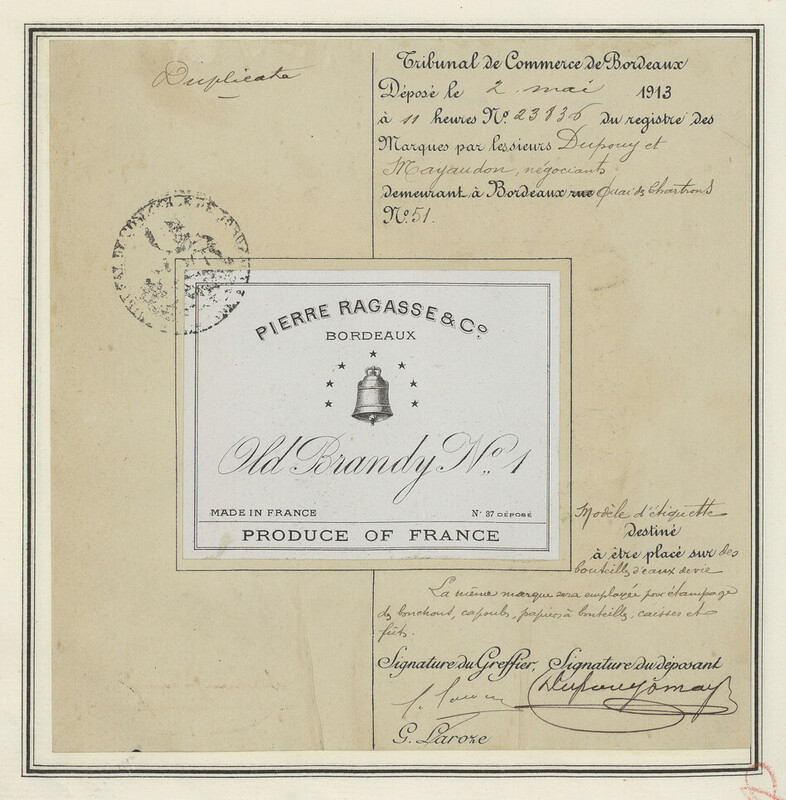 Duplicata
Tribunal de Commerce de Bordeaux
Déposé le 2 mai 1913
à 11 heures No. 23836 du registre des
Marques par lessieurs Dupouy et
Mayaudon, négociants
demeurant à Bordeaux rue Quai des Chartrons
No. 51.
PIERRE RAGASSE & Co
BORDEAUX
Old Brandy No. 1
MADE IN FRANCE
No 37 DÉPOSÉ
PRODUCE OF FRANCE
Modèle d'étiquette
destiné
à être placé sur des
bouteilles d'eaux de vie
La même marque sera employée pour étampage
des bouchons, capsules, papiers à bouteilles, caisses et
fûts.
Signature du Greffier, Signature du déposant
G. Laroze